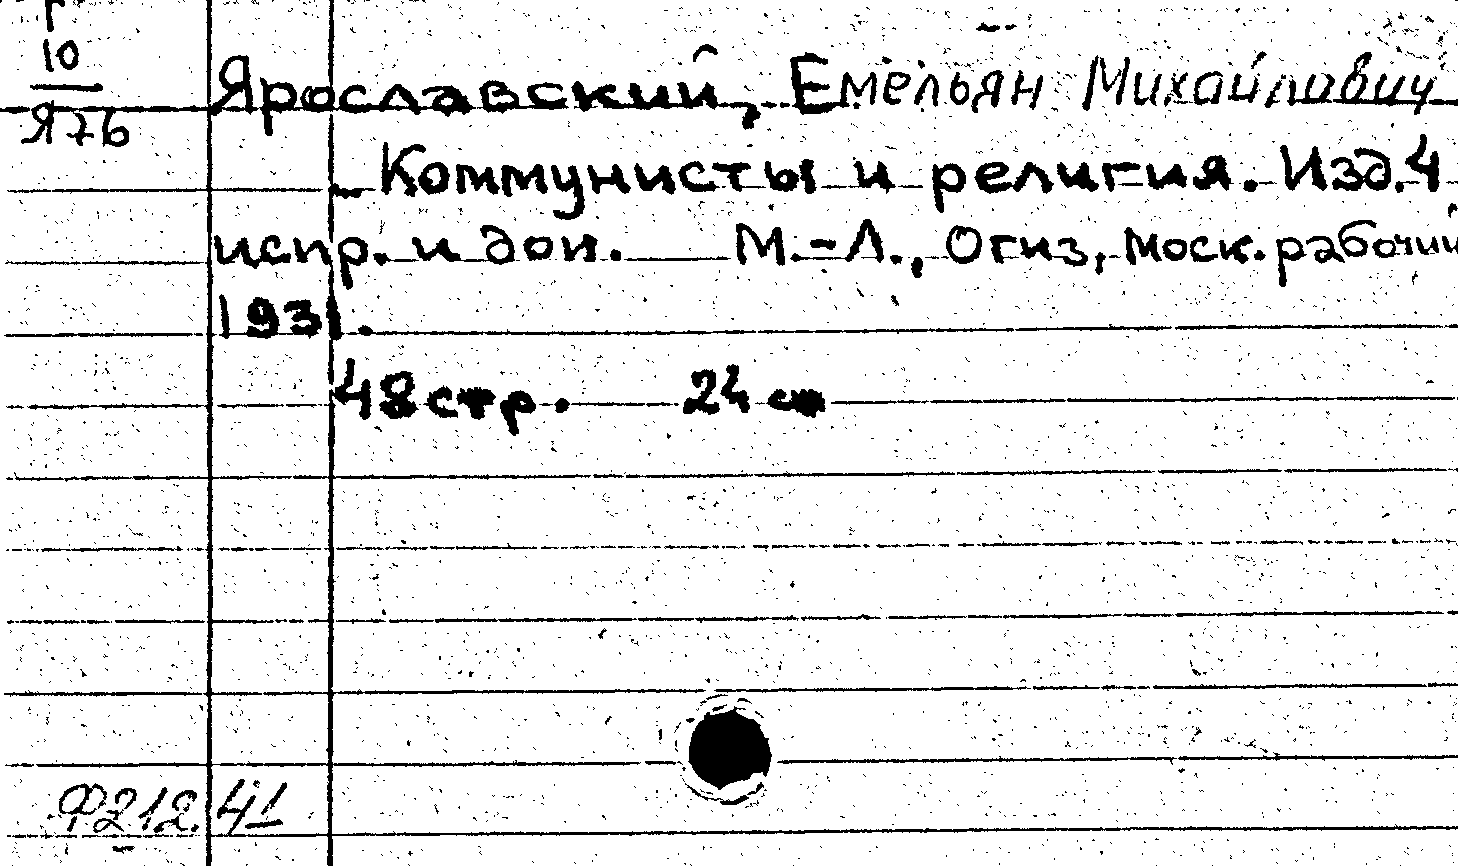 Г
10
Я76
Ярославский, Емельян Михайлович
Коммунисты и религия. Изд. 4
испр. и доп. М.-Л., Огиз, Моск. рабочий
1931.
48 стр. 24 см
Ф212.41